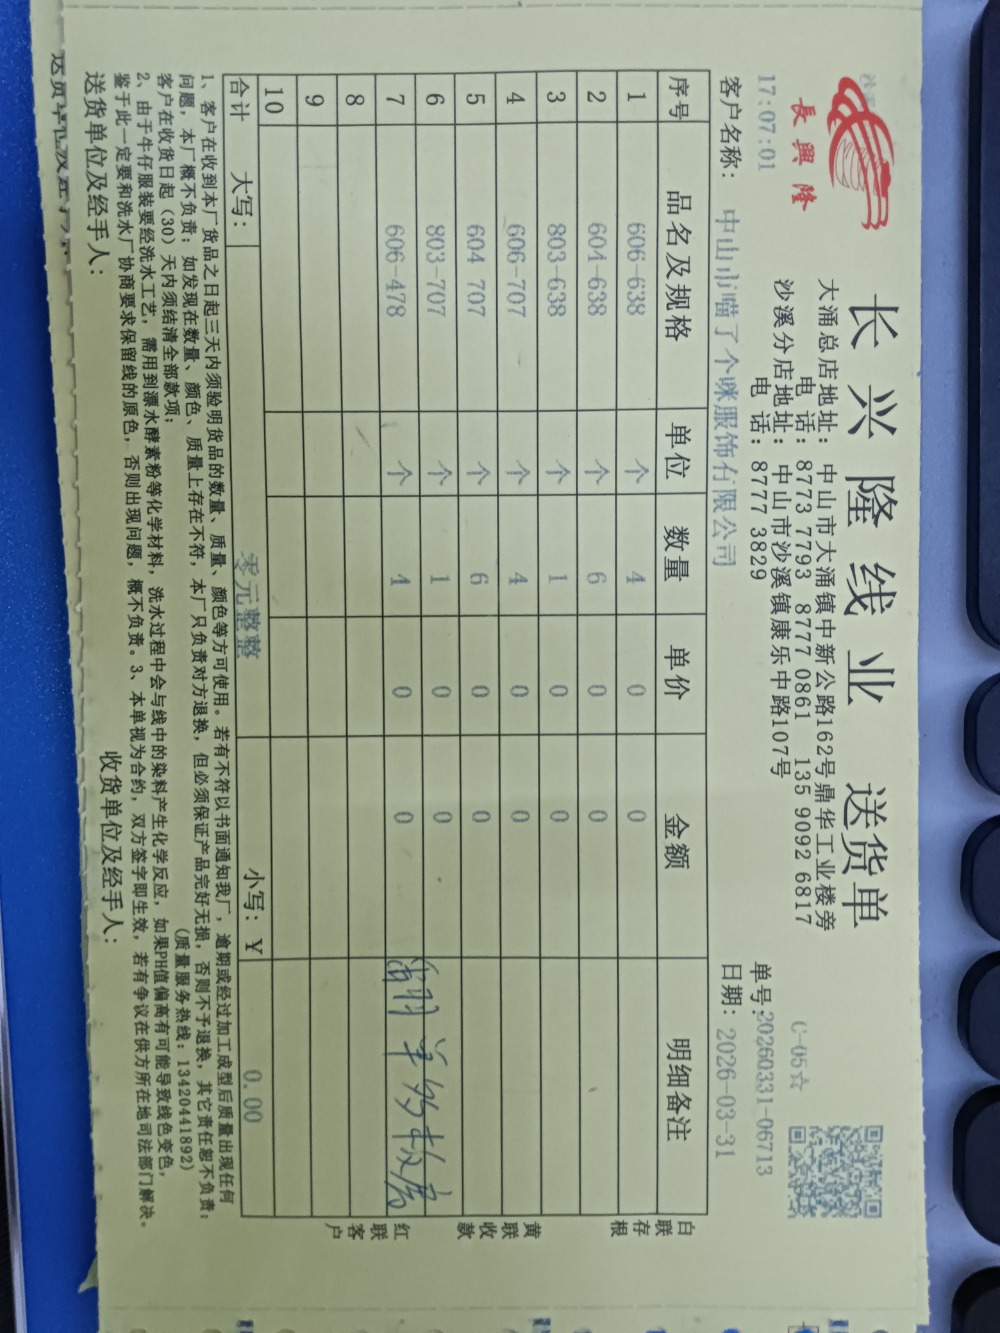 長興隆
长兴隆线业 送货单
大涌总店地址：中山市大涌镇中新公路162号鼎华工业楼旁
电 话：8773 7793 8777 0861 135 9092 6817
沙溪分店地址：中山市沙溪镇康乐中路107号
电 话：8777 3829
C-05☆
17:07:01
单号:20260331-06713
客户名称： 中山市喵了个咪服饰有限公司
日期：2026-03-31
序号 品名及规格 单位 数量 单价 金额 明细备注
1 606-638 个 4 0 0
2 604-638 个 6 0 0
3 803-638 个 1 0 0
4 606-707 个 4 0 0
5 604-707 个 6 0 0
6 803-707 个 1 0 0
7 606-478 个 4 0 0
8
9
10
合计 大写： 零元整整 小写：¥ 0.00
白联存根
黄联收款
红联客户
1、客户在收到本厂货品之日起三天内须验明货品的数量、质量、颜色等方可使用。若有不符以书面通知我厂，逾期或经过加工成型后质量出现任何
问题，本厂概不负责；如发现在数量、颜色、质量上存在不符，本厂只负责对方退换，但必须保证产品完好无损，否则不予退换，其它责任恕不负责；
客户在收货日起（30）天内须结清全部款项； (质量服务热线：13420441892)
2、由于牛仔服装要经洗水工艺，需用到漂水酵素粉等化学材料，洗水过程中会与线中的染料产生化学反应，如果PH值偏高有可能导致线色变色，
鉴于此一定要和洗水厂协商要求保留线的原色，否则出现问题，概不负责。3、本单视为合约，双方签字即生效，若有争议在供方所在地司法部门解决。
送货单位及经手人： 收货单位及经手人：